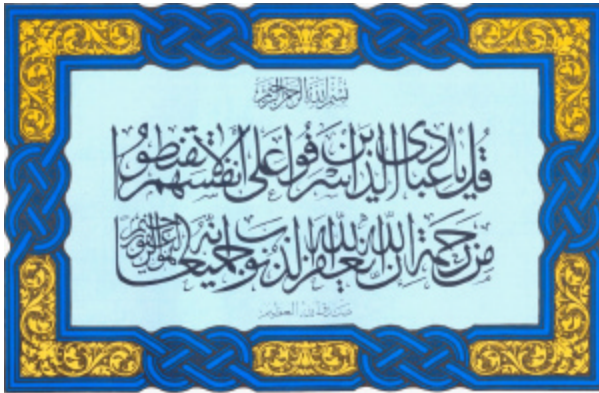 بسم الله الرحمن الرحيم
قل يا عبادي الذين أسرفوا على أنفسهم لا تقنطوا
من رحمة الله إن الله يغفر الذنوب جميعا إنه هو الغفور الرحيم
صدق الله العظيم